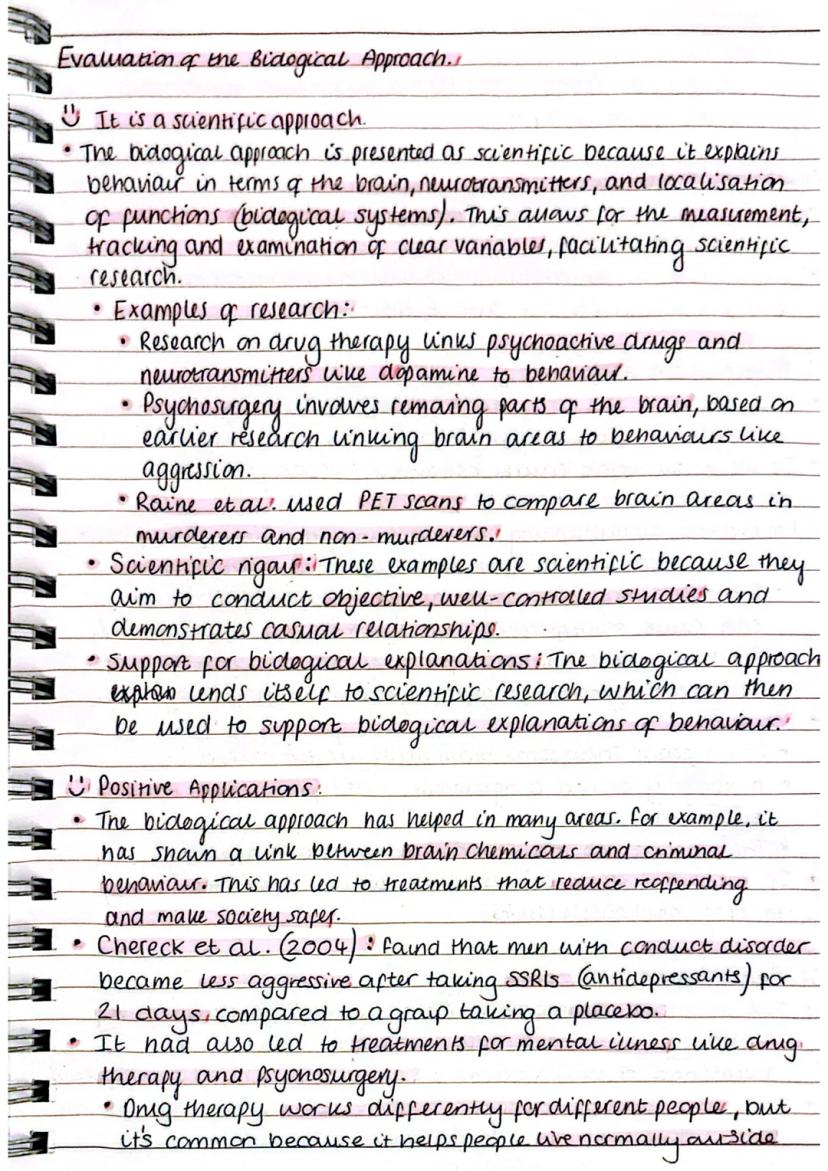 Evaluation of the Biological Approach.
It is a scientific approach.
• The biological approach is presented as scientific because it explains
behaviour in terms of the brain, neurotransmitters, and localisation
of functions (biological systems). This allows for the measurement,
tracking and examination of clear variables, facilitating scientific
research.
• Examples of research:
• Research on drug therapy links psychoactive drugs and
neurotransmitters like dopamine to behaviour.
• Psychosurgery involves removing parts of the brain, based on
earlier research linking brain areas to behaviours like
aggression.
• Raine et al. used PET scans to compare brain areas in
murderers and non-murderers.
• Scientific rigour: These examples are scientific because they
aim to conduct objective, well-controlled studies and
demonstrates casual relationships.
• Support for biological explanations: The biological approach
lends itself to scientific research, which can then
be used to support biological explanations of behaviour.
Positive Applications:
• The biological approach has helped in many areas. For example, it
has shown a link between brain chemicals and criminal
behaviour. This has led to treatments that reduce reoffending
and make society safer.
• Chereck et al. (2004): found that men with conduct disorder
became less aggressive after taking SSRIs (antidepressants) for
21 days, compared to a group taking a placebo.
• It had also led to treatments for mental illness like drug
therapy and psychosurgery.
• Drug therapy works differently for different people, but
it's common because it helps people live normally outside